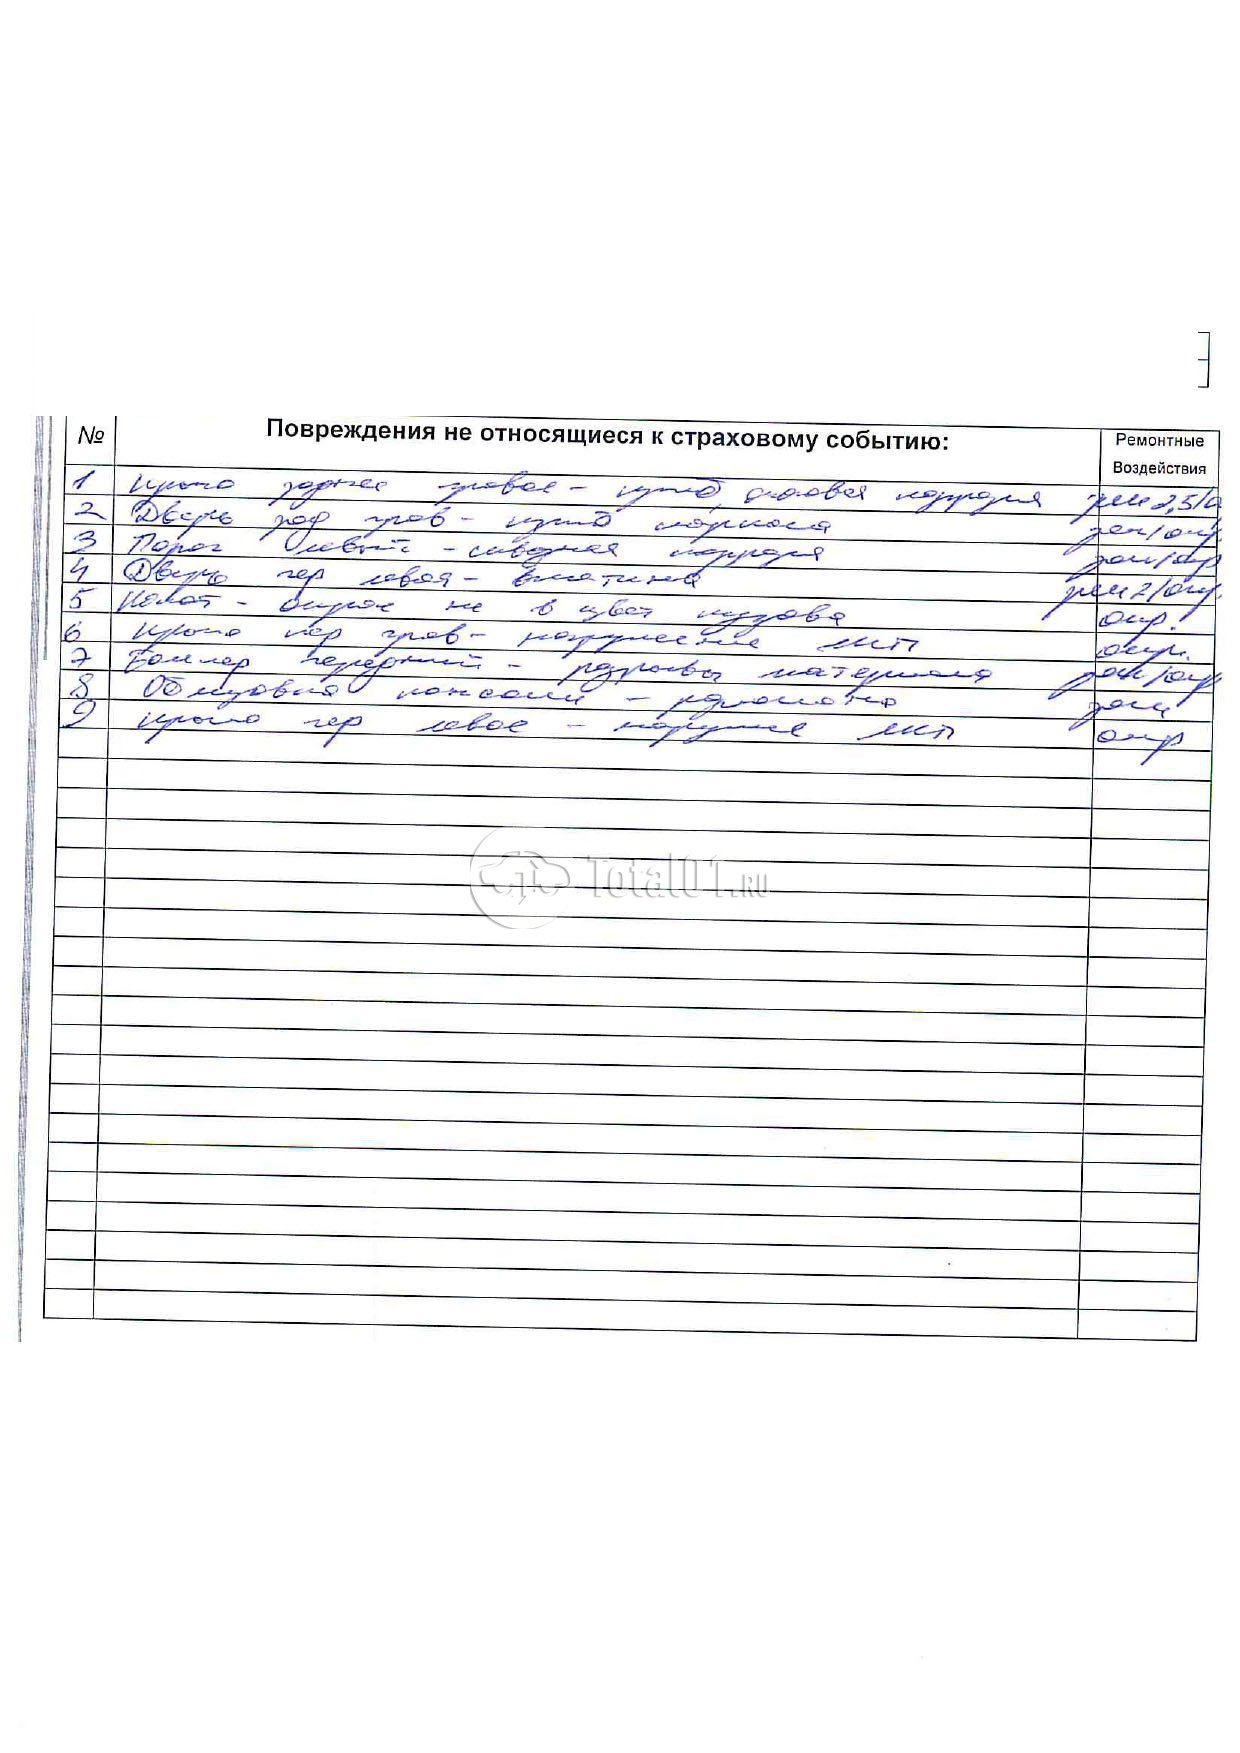 № Повреждения не относящиеся к страховому событию: Ремонтные
Воздействия
1 Крыло заднее правое - изгиб, сквозная коррозия рем 2,5/о
2 Дверь зад прав - изгиб каркаса зам/окр.
3 Порог левый - сквозная коррозия зам/окр
4 Дверь пер левая - вмятина рем 2/окр.
5 Капот - окрас не в цвет кузова окр.
6 Крыло пер прав - нарушение ЛКП окр.
7 Бампер передний - разрывы материала зам/окр
8 Облицовка консоли - зам
9 Крыло пер левое - ЛКП окр
Total01.RU